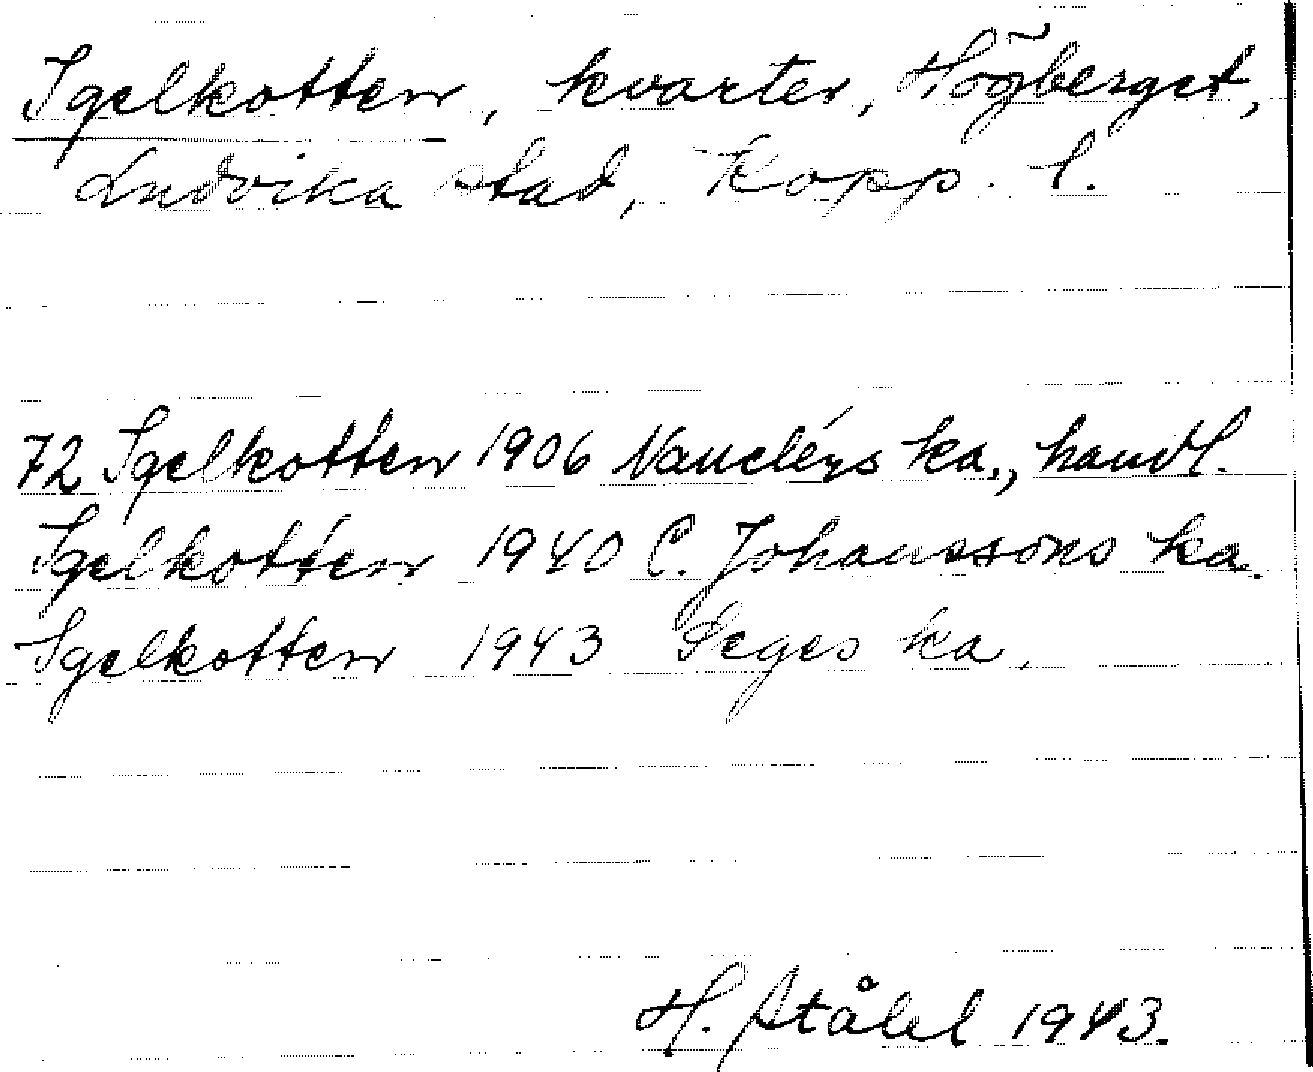 Igelkotten, kvarter, Högberget,
Ludvika stad, Kopp. l.
72 Igelkotten 1906 ka., handl.
Igelkotten 1940 C. Johanssons ka.
Igelkotten 1943 Seges ka.
H. Ståhl 1943.